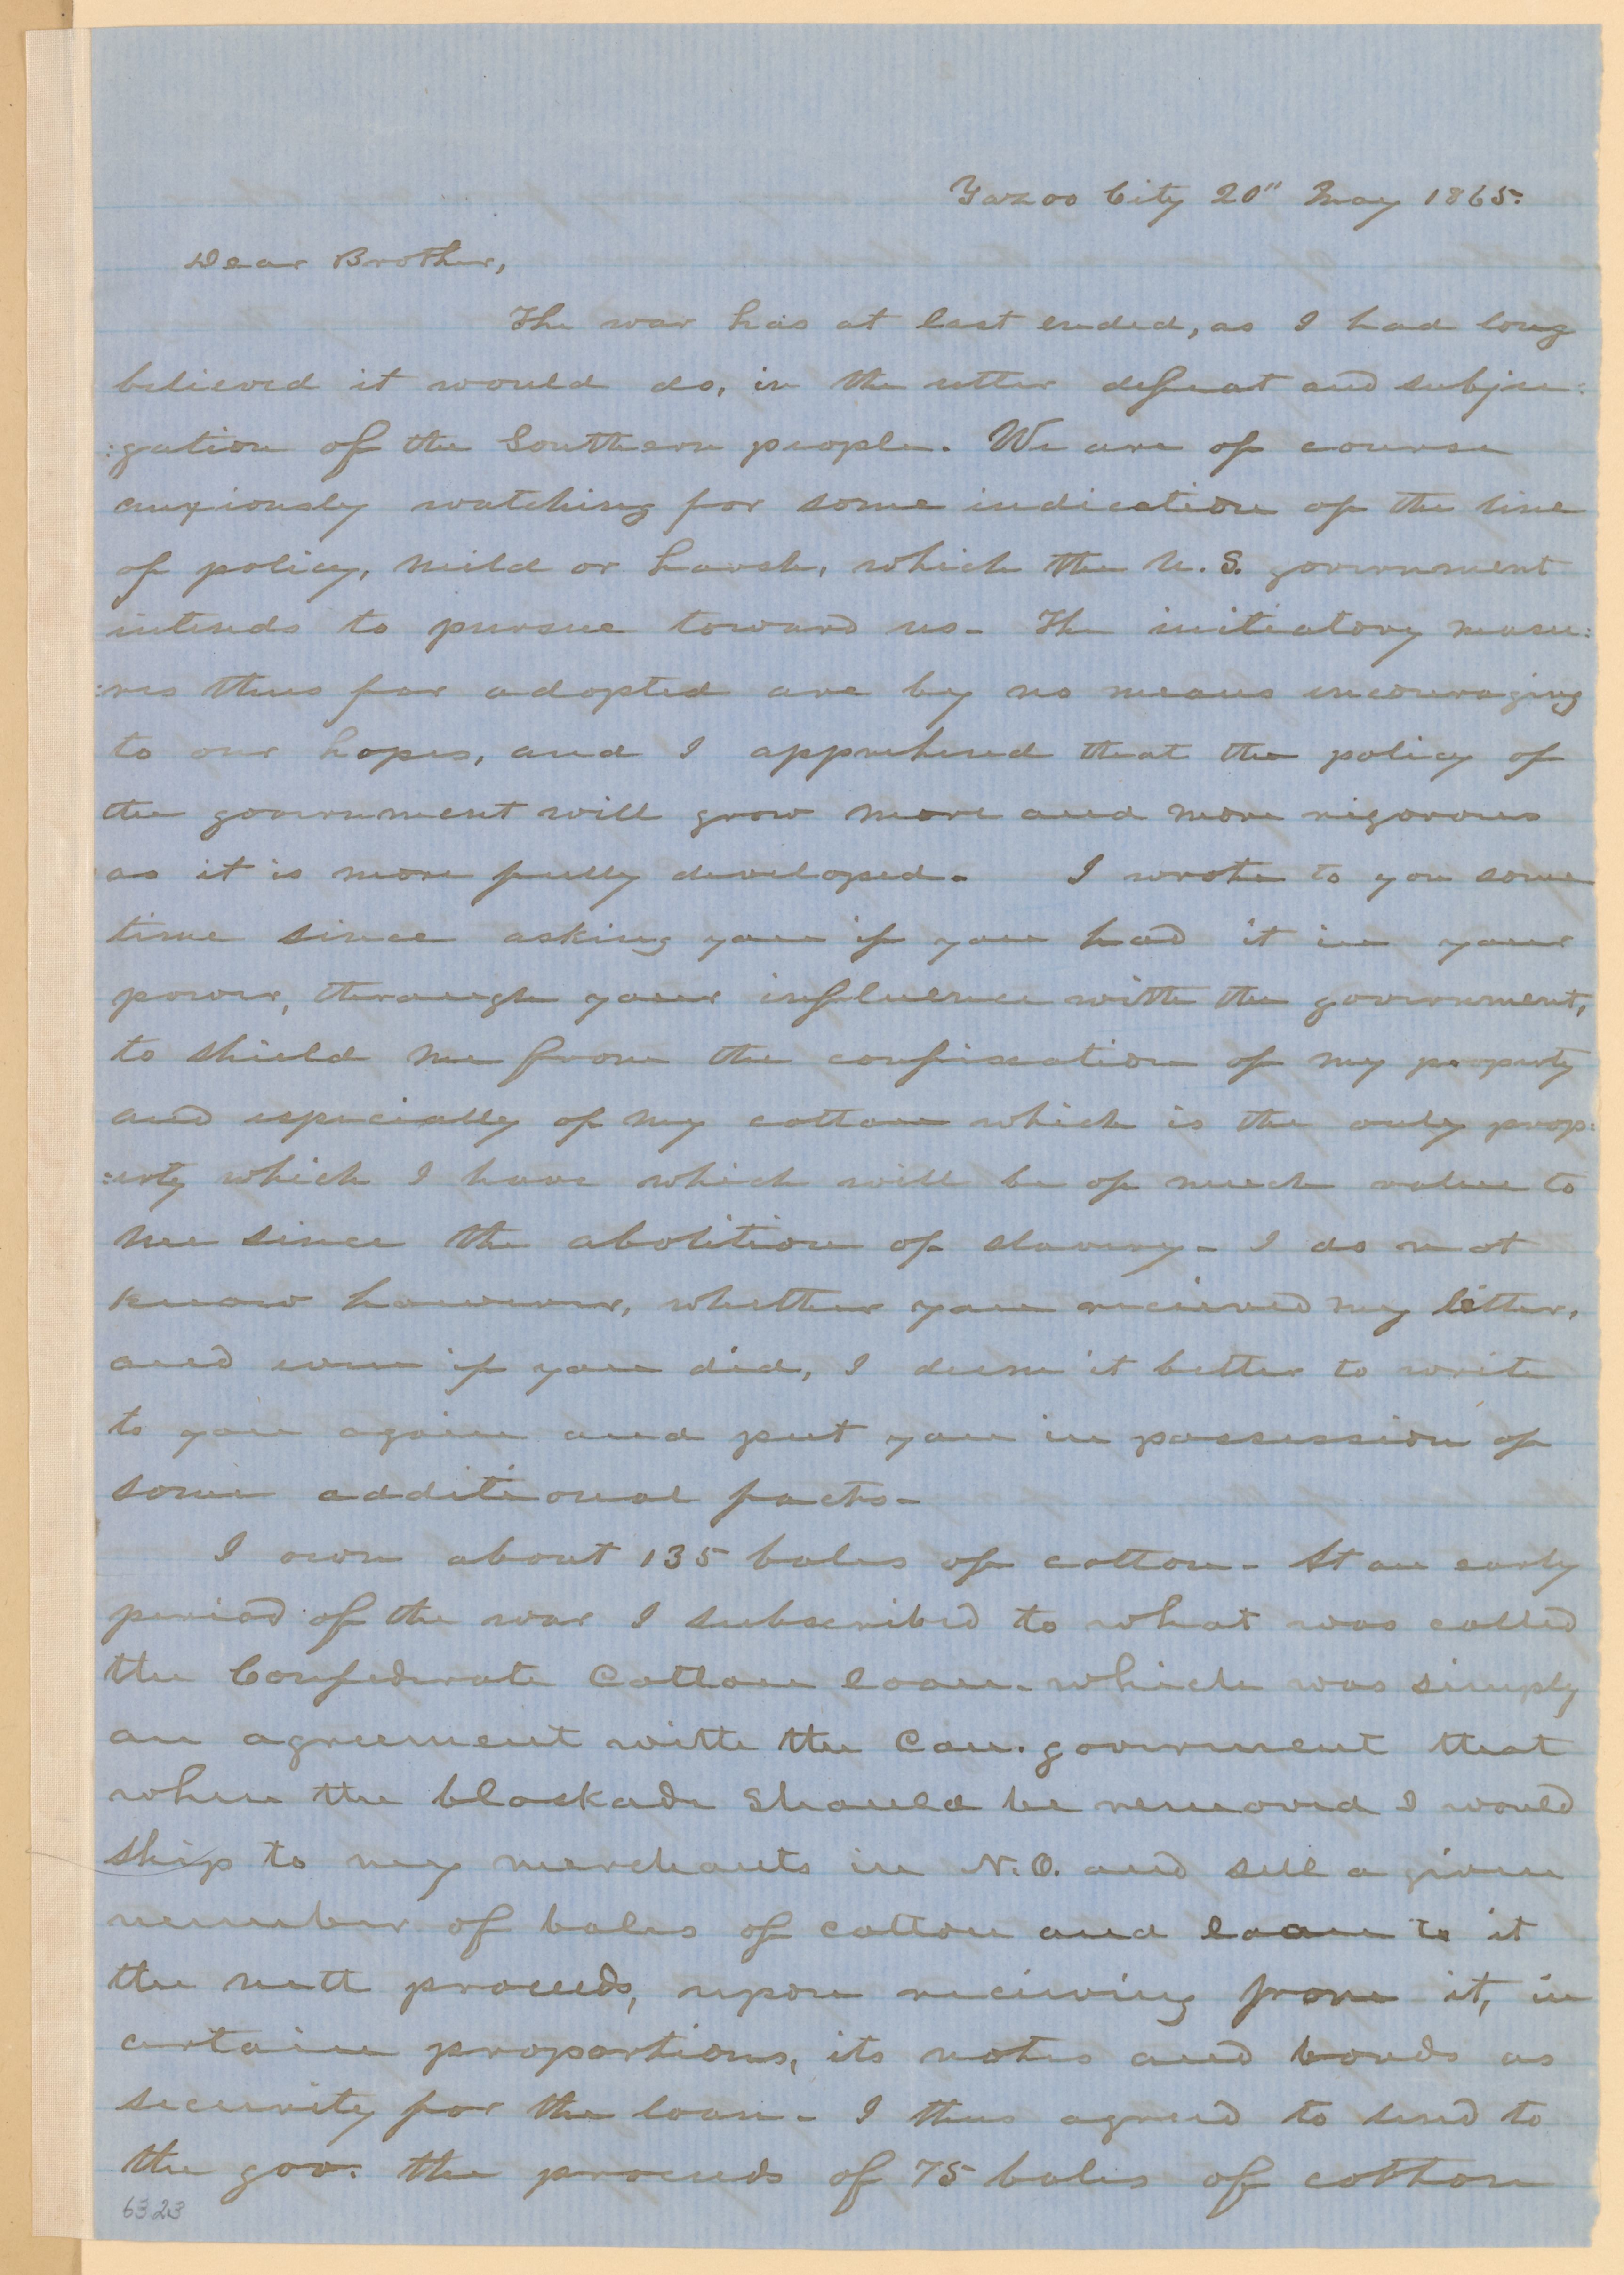 Yazoo City 20" May 1865.
Dear Brother,
The war has at last ended, as I had long
believed it would do, in the utter defeat and subju:
:gation of the Southern people. We are of course
anxiously watching for some indication of the line
of policy, mild or harsh, which the U.S. government
intends to pursue toward us - The initiatory meas:
:res thus far adopted are by no means encouraging
to our hopes, and I apprehend that the policy of
the government will grow more and more rigorous
as it is more fully developed - I wrote to you some
time since asking you if you had it in your
power, through your influence with the government,
to shield me from the confiscation of my property
and especially of my cotton which is the only prop:
:erty which I have which will be of much value to
me since the abolition of slavery - I do not
know however, whether you received my letter,
and even if you did, I deem it better to write
to you again and put you in possession of
some additional facts -
I own about 135 bales of cotton - At an early
period of the war I subscribed to what was called
the Confederate Cotton loan - which was simply
an agreement with the Con. government that
when the blockade should be removed I would
ship to my merchants in N.O. and sell a given
number of bales of cotton and loan to it
the nett proceeds, upon receiving from it, in
certain proportions, its notes and bonds as
security for the loan - I thus agreed to lend to
the gov. the proceeds of 75 bales of cotton
6323